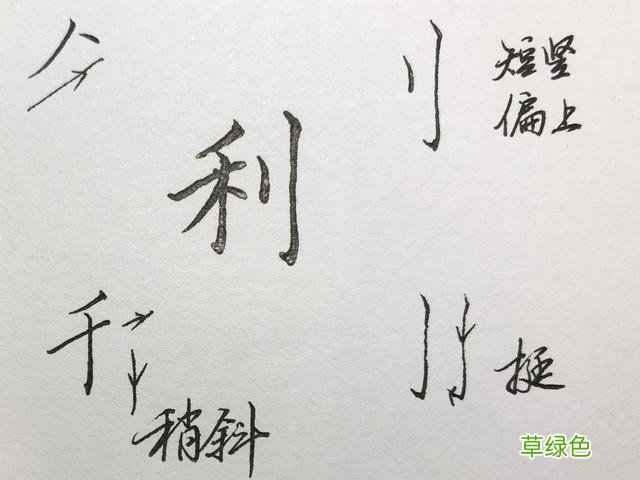 短竖
偏上
利
稍斜
挺
草绿色